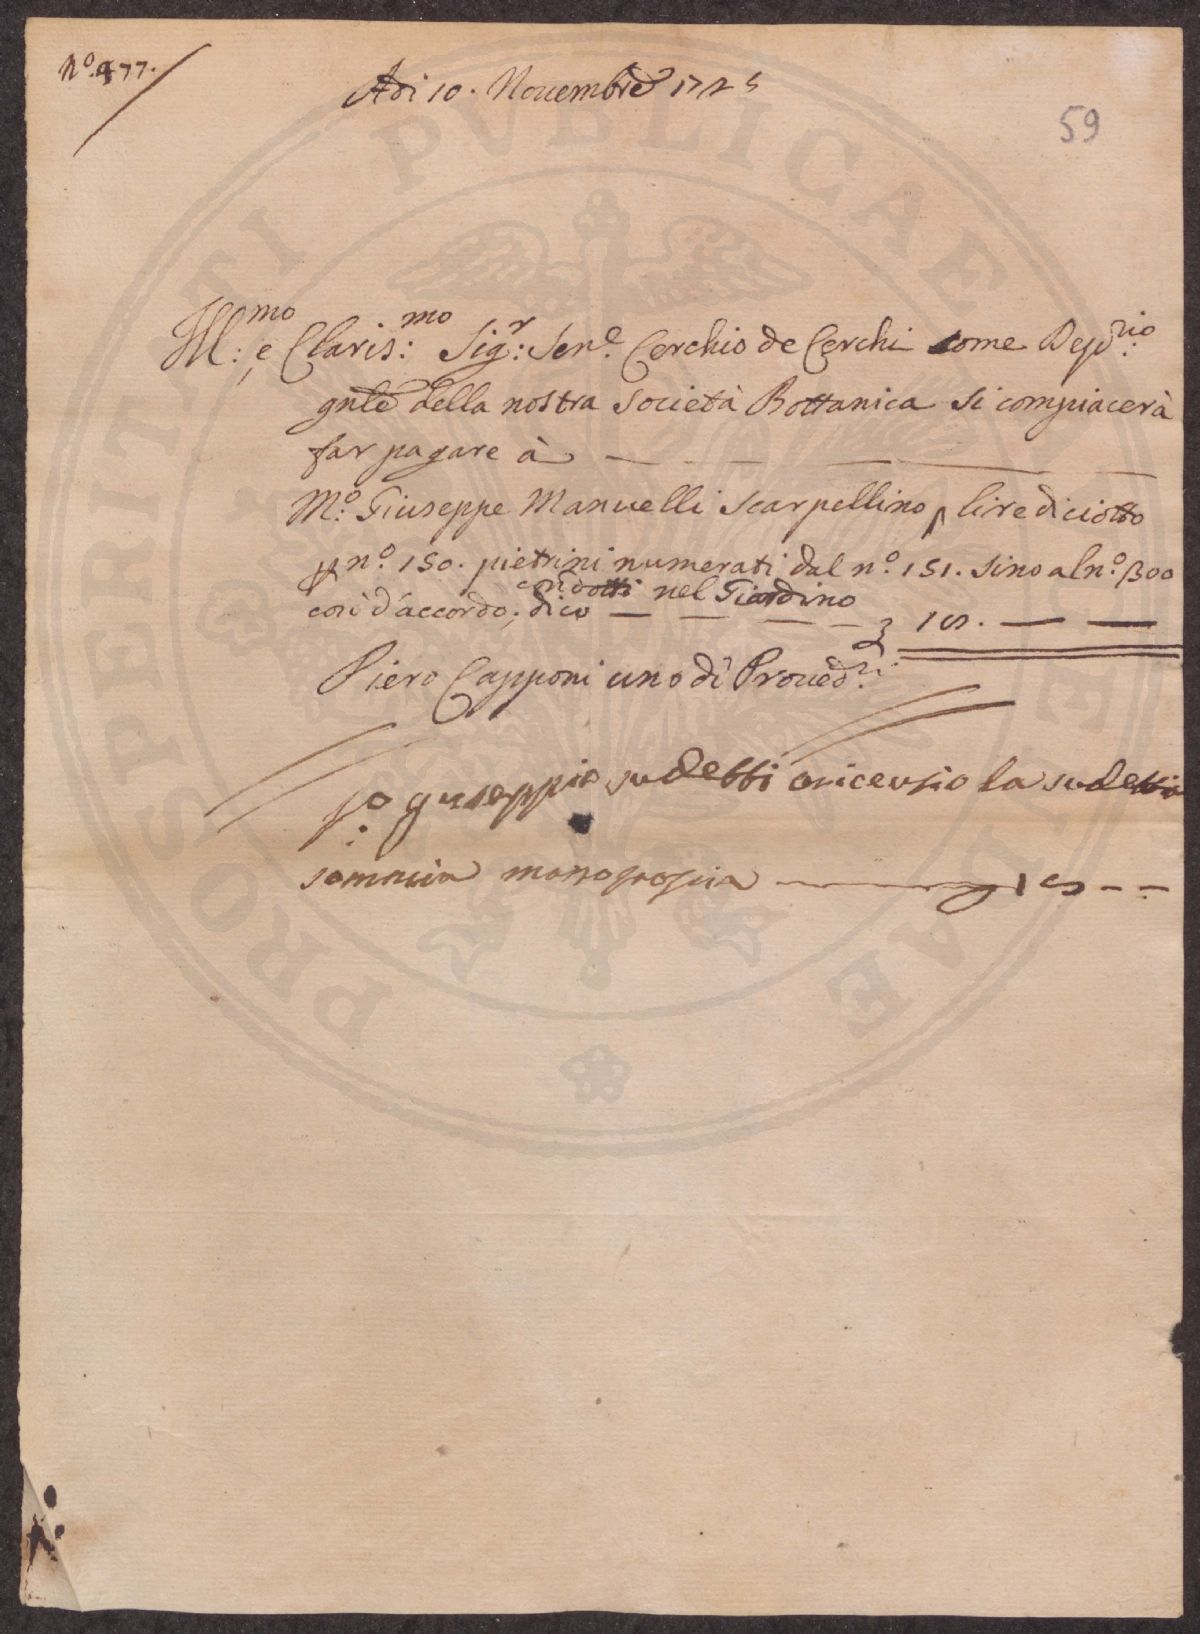 N.º 477.
Adi 10. Novembre 1725
59
Ill:mo e Claris:mo Sig:r Sen.e Cerchio de Cerchi come Dep:rio
gnle della nostra società Bottanica si compiacerà
far pagare à
M.º Giuseppe Manuelli scarpellino p lire diciotto
p n.º 150. pietrini numerati dal n.º 151. sino al n.º 300
condotti nel Giardino
così d'accordo; dico — — — — £ 18. — —
Piero Capponi uno di Proved:ri
Jo guseppie sudetti o riceuto la sudetta
somma mano propia — 18 - -
PROSPERITATI PVBLICAE